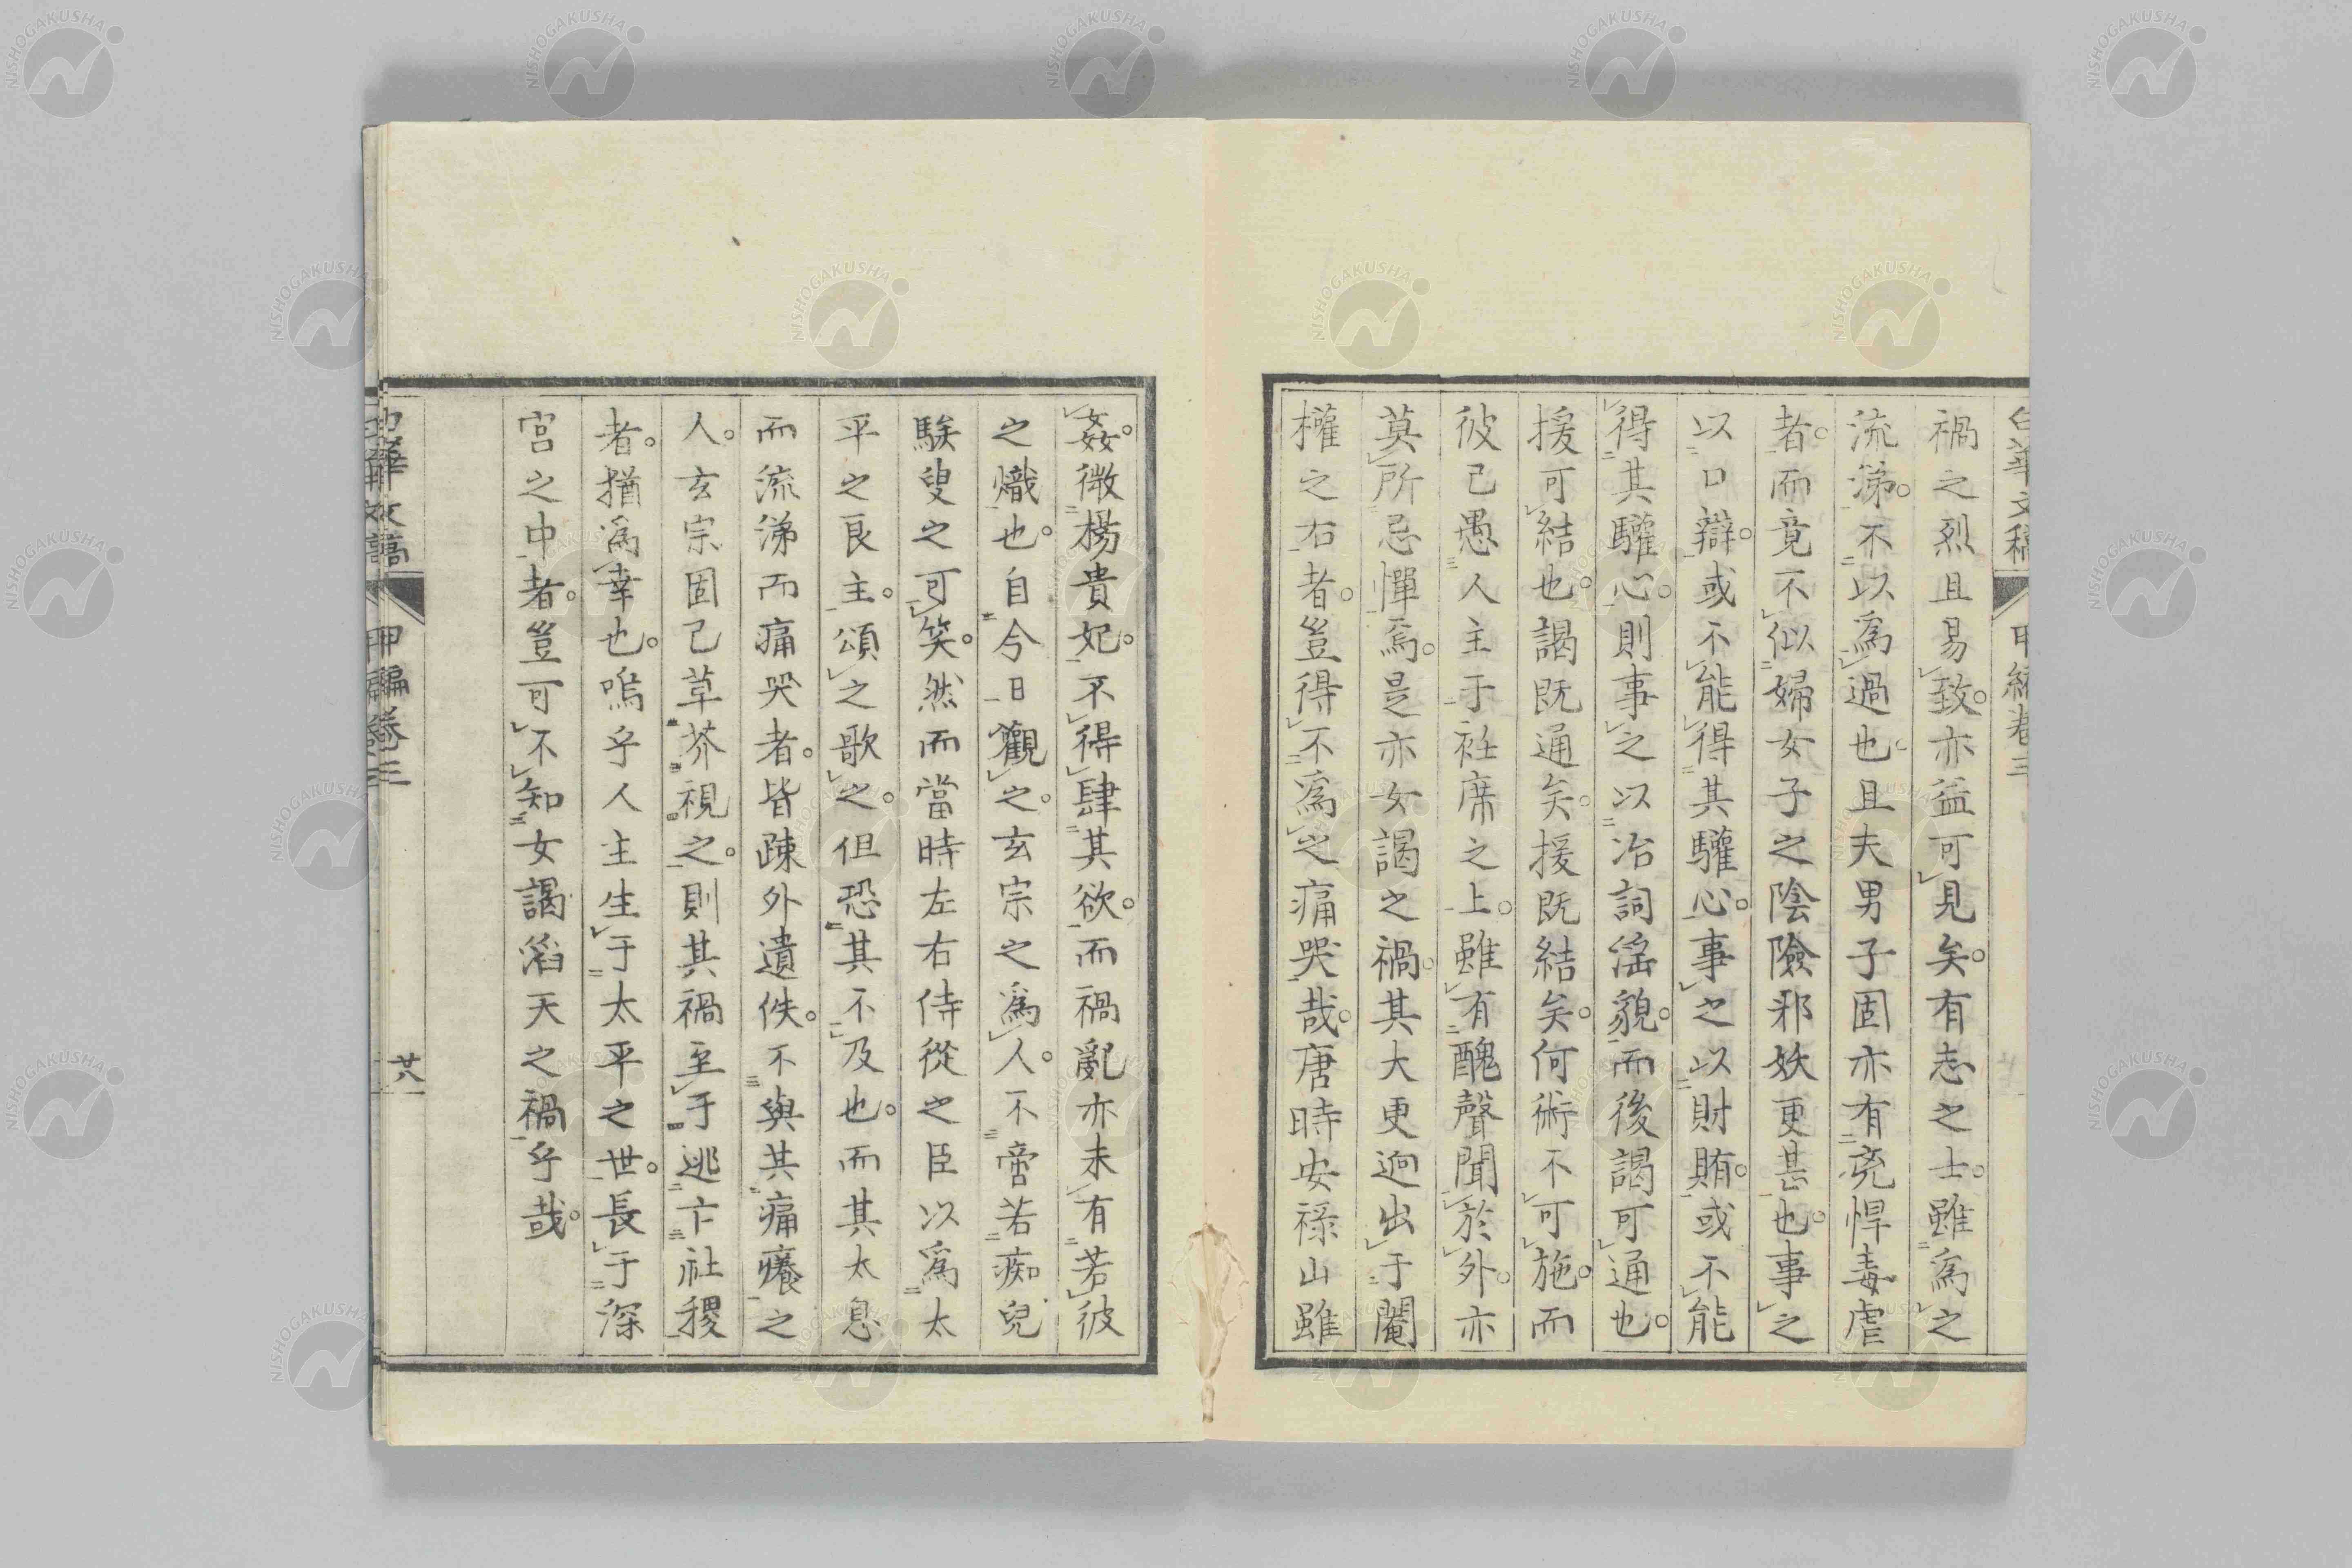 禍之烈且易致。亦益可見矣。有志之士。雖爲之
流涕。不以爲過也。且夫男子固亦有兇悍毒虐
者。而竟不似婦女子之陰險邪妖更甚也。事之
以口辯。或不能得其驩心。事之以財賄。或不能
得其驩心。則事之以冶詞淫貌。而後謁可通也。
援可結也。謁既通矣。援既結矣。何術不可施。而
彼已愚人主于衽席之上。雖有醜聲聞於外。亦
莫所忌憚焉。是亦女謁之禍。其大更逈出于閹
權之右者。豈得不爲之痛哭哉。唐時安祿山雖
姦。微楊貴妃。不得肆其欲。而禍亂亦未有若彼
之熾也。自今日觀之。玄宗之爲人。不啻若痴兒
騃叟之可笑。然而當時左右侍從之臣以爲太
平之良主。頌之歌之。但恐其不及也。而其太息
而流涕而痛哭者。皆疎外遺佚。不與其痛癢之
人。玄宗固已草芥視之。則其禍至于逃亡社稷
者。猶爲幸也。嗚乎人主生于太平之世。長于深
宮之中者。豈可不知女謁滔天之禍乎哉。
甲編卷三
廿八
NISHOGAKUSHA